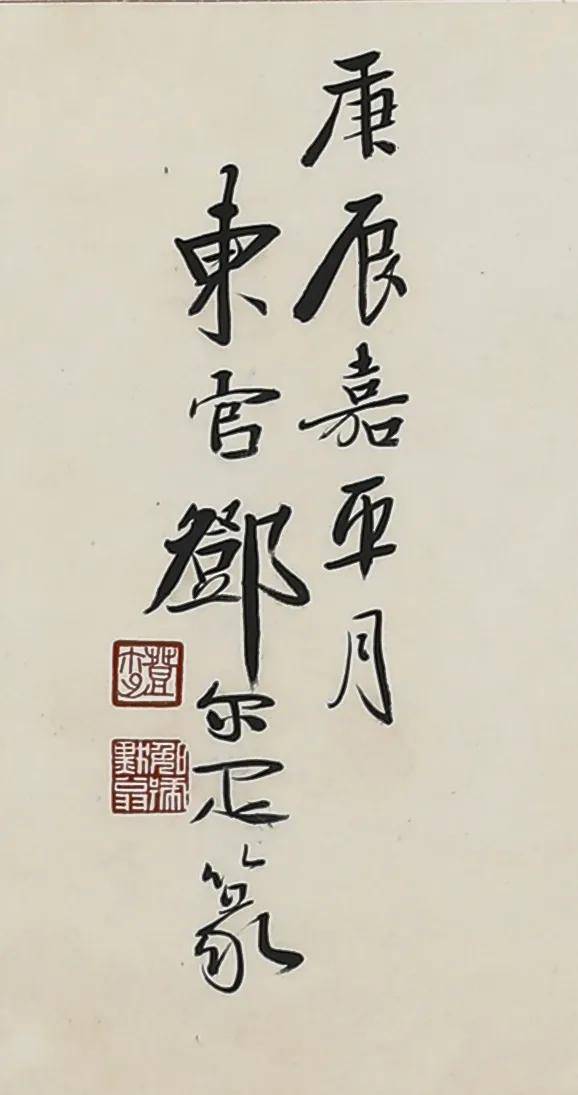 庚辰嘉平月
東官鄧尔疋篆